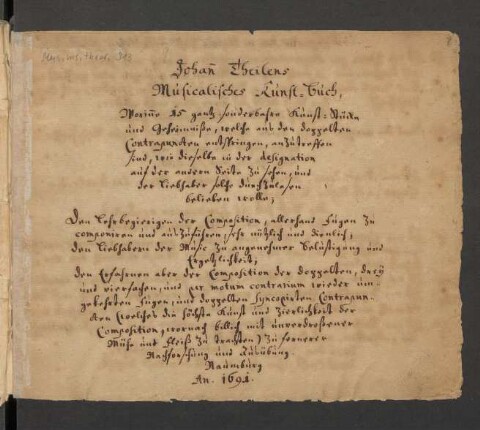 Mus. ms. theor. 913
Johañ Theilens
Musicalisches Kunst-Buch,
Woriñe 15 gantz sonderbahre Kunst-Stücke
und Geheimniße, welche aus den doppelten
Contrapuncten entspringen, anzutreffen
sind, wie dieselbe in der designation
auf der andern Seite zu sehen, und
der Liebhaber selbe durchzulesen
belieben wolle;
Den Lehrbegierigen der Composition, allerhand Fugen zu
componiren und auszuführen, sehr nützlich und dienlich;
den Liebhabern der Music zu angenehmer Belüstigung und
Ergetzlichkeit;
den Erfahrnen aber der Composition der doppelten, drey
und vierfachen, und per motum contrarium wieder üm-
gekehrten Fugen, und doppelten syncopirten Contrapun-
cten (welches die höchste Kunst und Zierlichkeit der
Composition, wornach billich mit unverdroßener
Mühe und Fleiß zu trachten) zu fernerer
Nachforschung und Ausübung.
Naumburg
An. 1691.